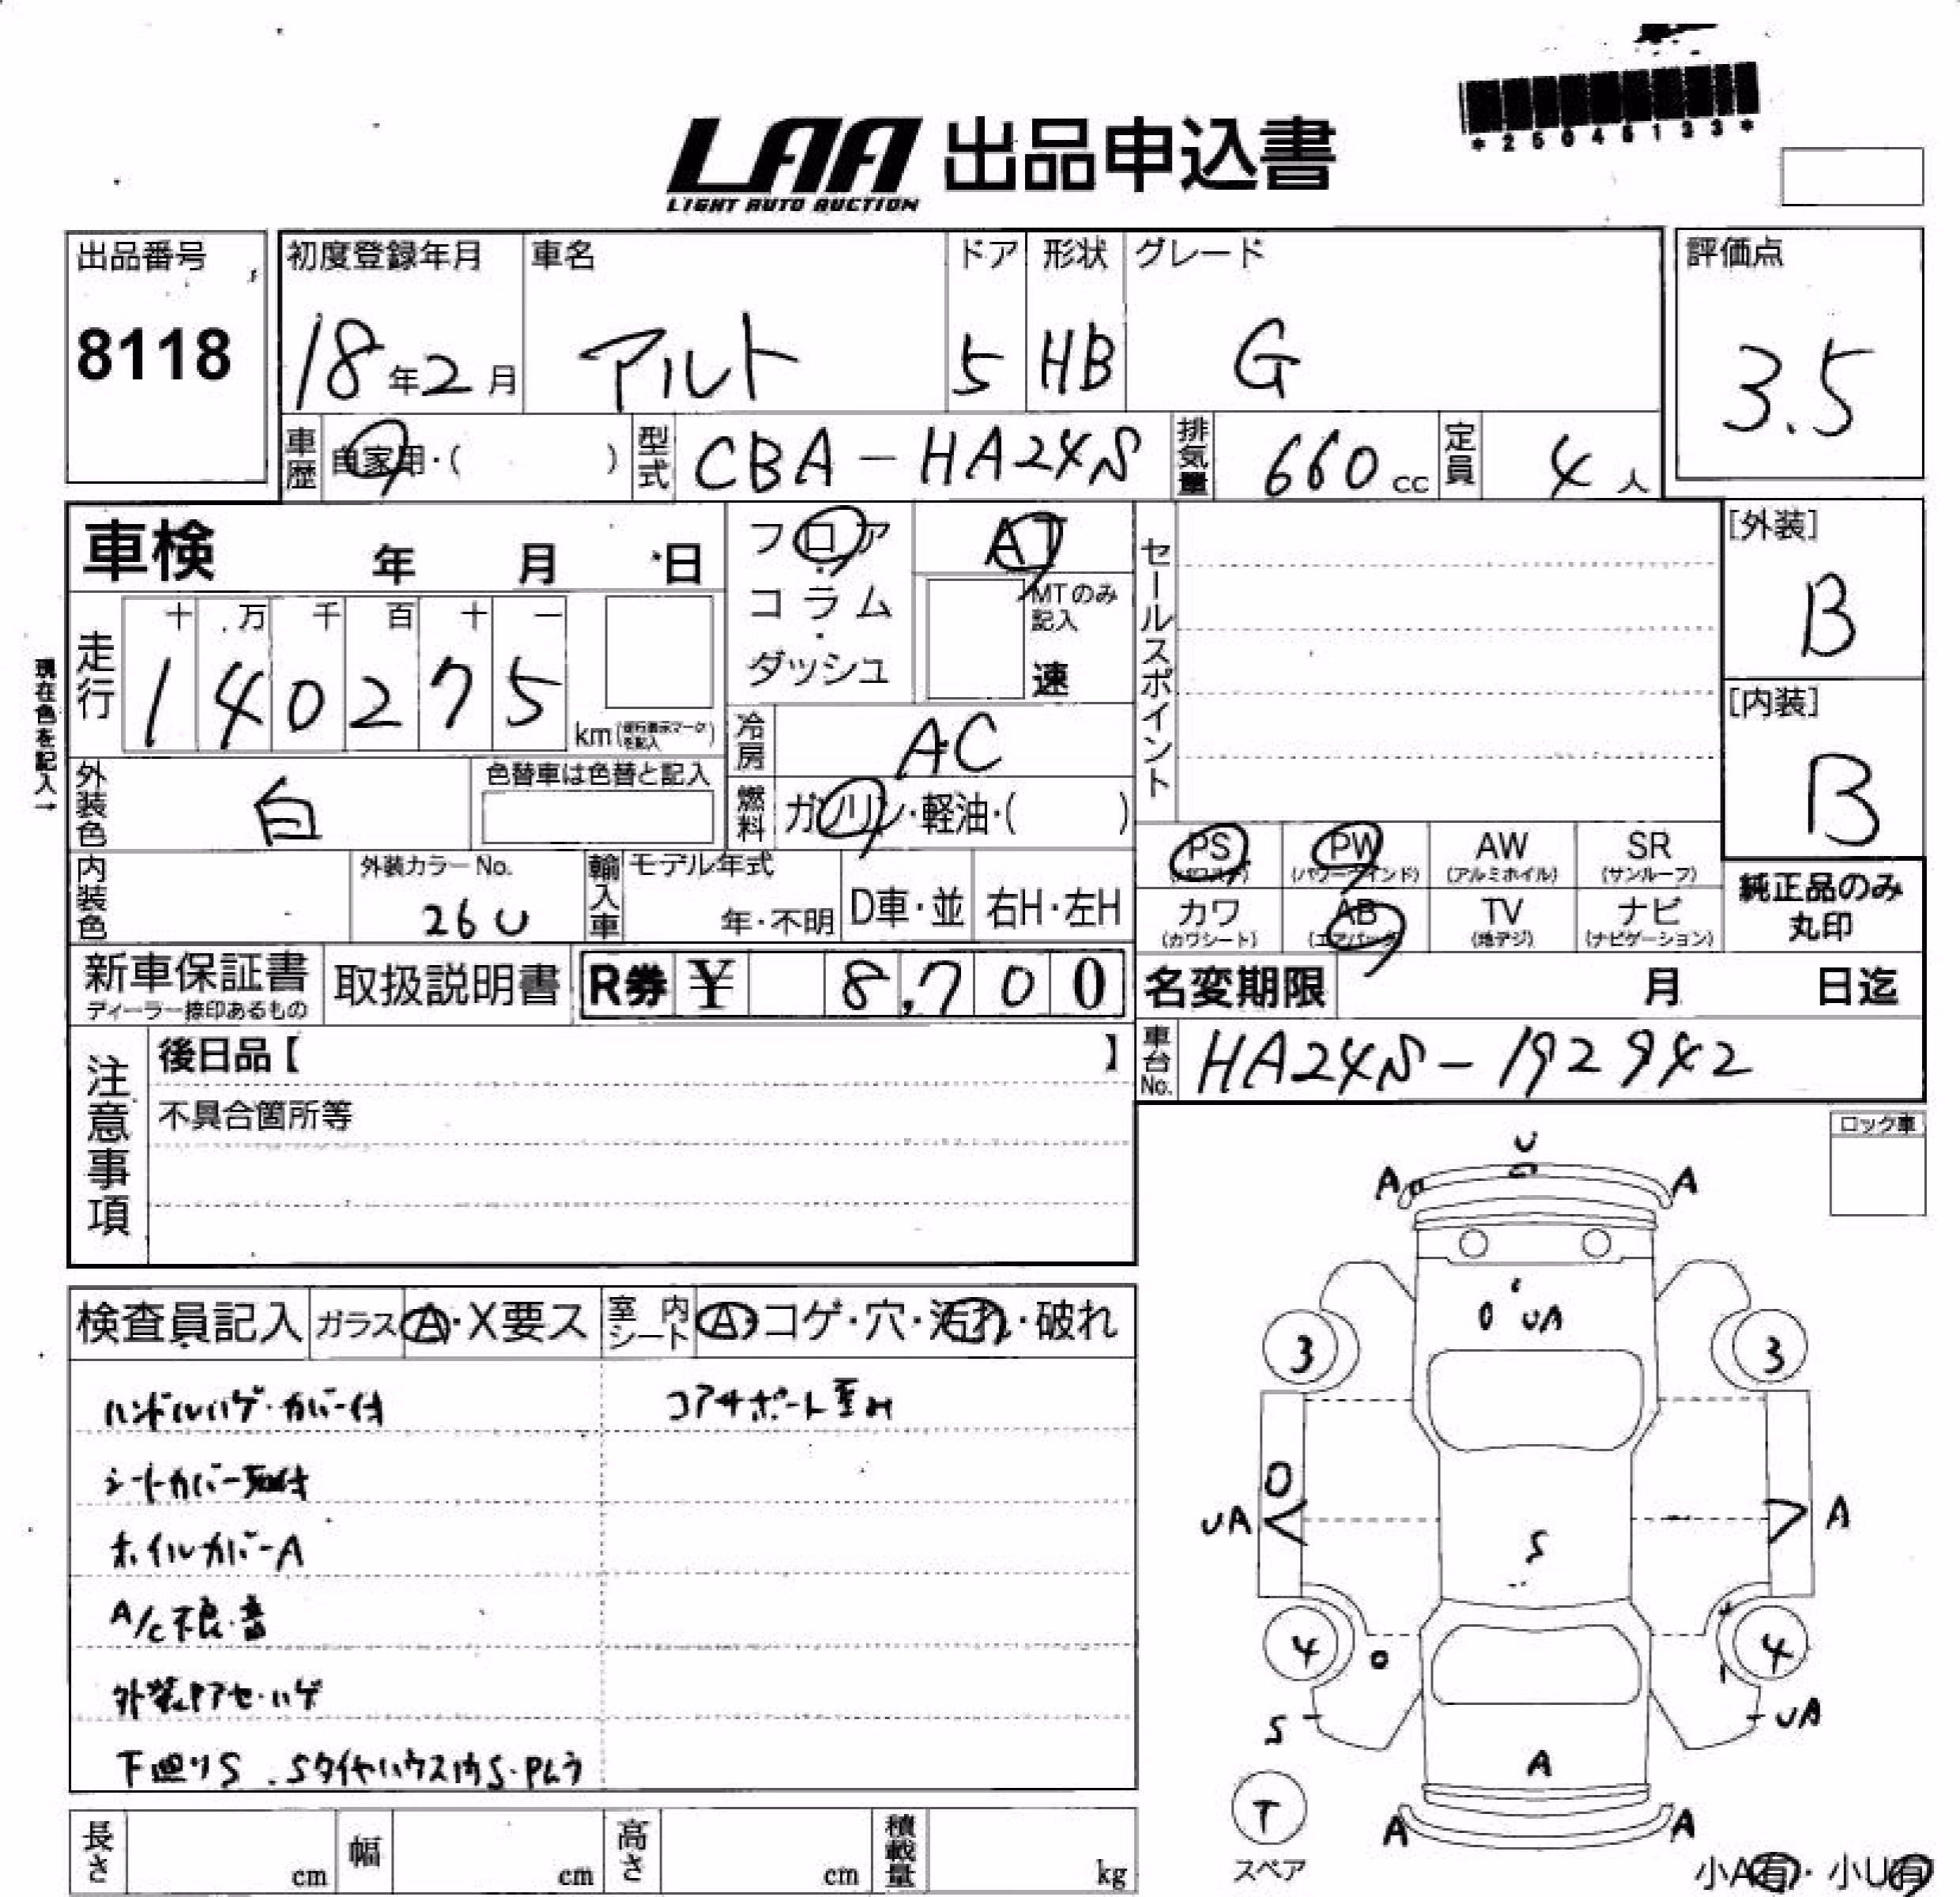 *25045133*
LAA 出品申込書
LIGHT AUTO AUCTION
出品番号 8118
初度登録年月 18年2月
車名 アルト
ドア 5
形状 HB
グレード G
評価点 3.5
車歴 自家用・( )
型式 CBA-HA24S
排気量 660cc
定員 4人
車検 年 月 日
フロア・コラム・ダッシュ
AT
MTのみ記入 速
セールスポイント
[外装] B
[内装] B
現在色を記入→
走行 十 万 千 百 十 一
1 4 0 2 7 5 km
冷房 AC
燃料 ガソリン・軽油・( )
外装色 白
色替車は色替と記入
内装色
外装カラーNo. 26U
輸入車 モデル年式 年・不明 D車・並 右H・左H
PS (パワステ) PW (パワーウインド) AW (アルミホイル) SR (サンルーフ)
カワ (カワシート) AB (エアバック) TV (地デジ) ナビ (ナビゲーション)
純正品のみ丸印
新車保証書 ディーラー捺印あるもの
取扱説明書
R券 ¥ 8,700
名変期限 月 日迄
車台No. HA24S-192942
注意事項
後日品【 】
不具合箇所等
ロック車
検査員記入 ガラス A・X要ス 室内シート A・コゲ・穴・汚れ・破れ
ハンドルハゲ・カバー付 コアサポート歪み
シートカバー取付
ホイルカバーA
A/C不良・音
外装色アセ・ハゲ
下廻りS .Sタイヤハウス内S
U
A A
U UA
3 3
UA A
S
4 4
S UA
A
T
A A
スペア
小A有・小U有
長さ cm 幅 cm 高さ cm 積載量 kg